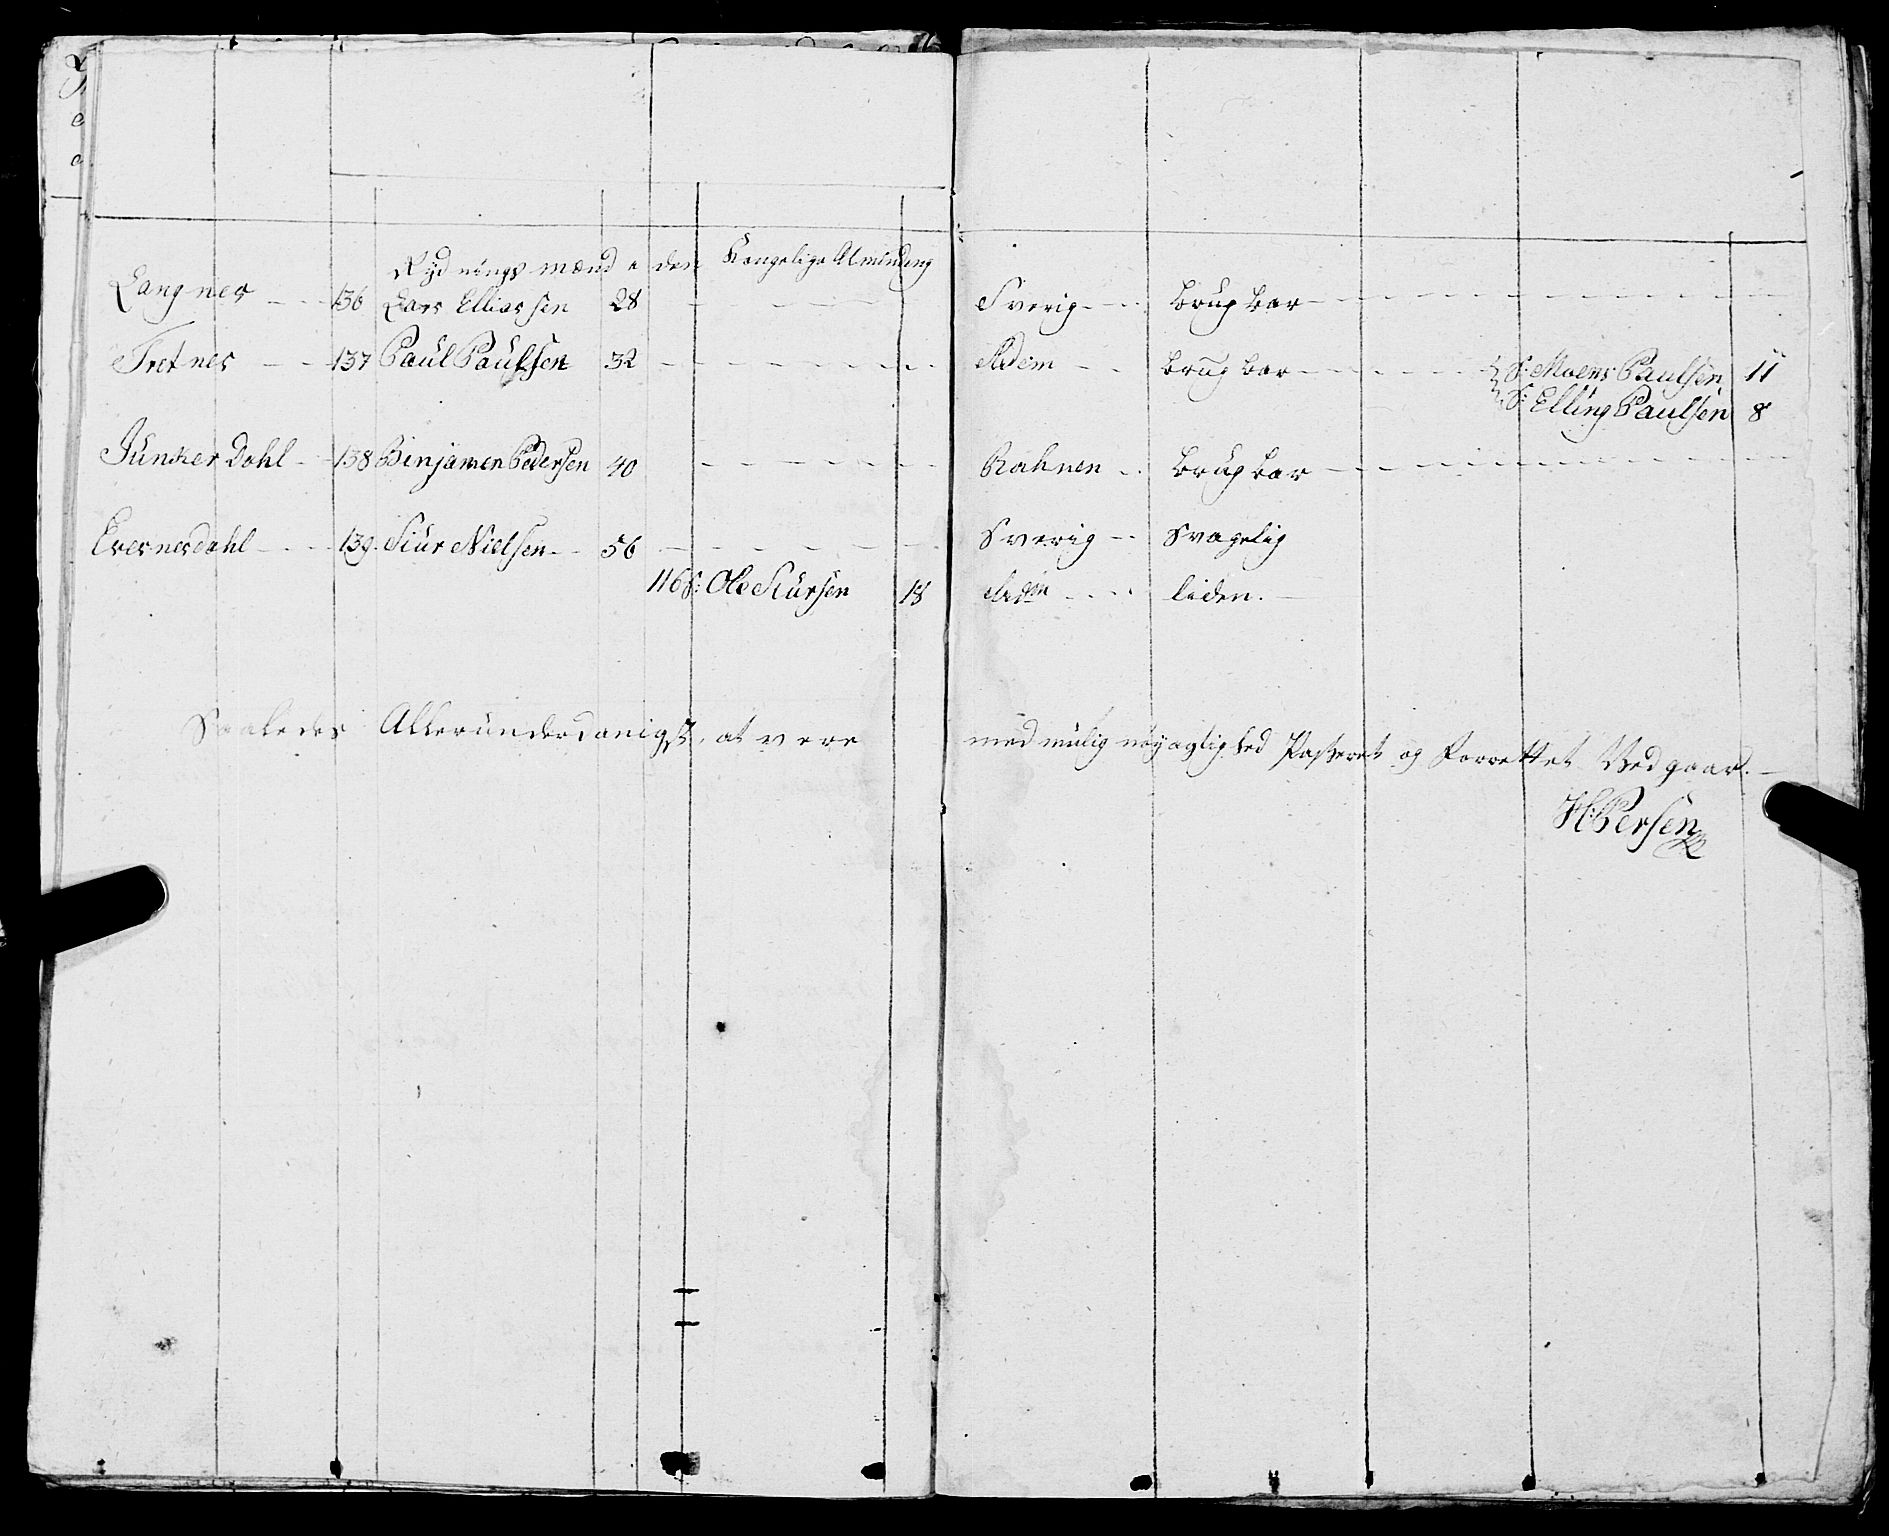 Rydnings mænd i den Kongelige Almindinng
Langnes 136 Lars Elliassen 28 Sverig brugbar
Tretnes 137 Paul Paulsen 32 Adem brugbar S: Moens Paulsen 11
S: Elling Paulsen 8
Junker Dahl 138 Binjamen Pedersen 40 Rahnen brugbar
Evesnesdahl 139 Siur Nielsen 56 Sverig Svagelig
116 S: Ole Siursen 18 liden.
Saaledes Allerunderdanigst, at vere med mulig nøyaglighed Passeret og Forrettet Vedgaar.
H: Persen